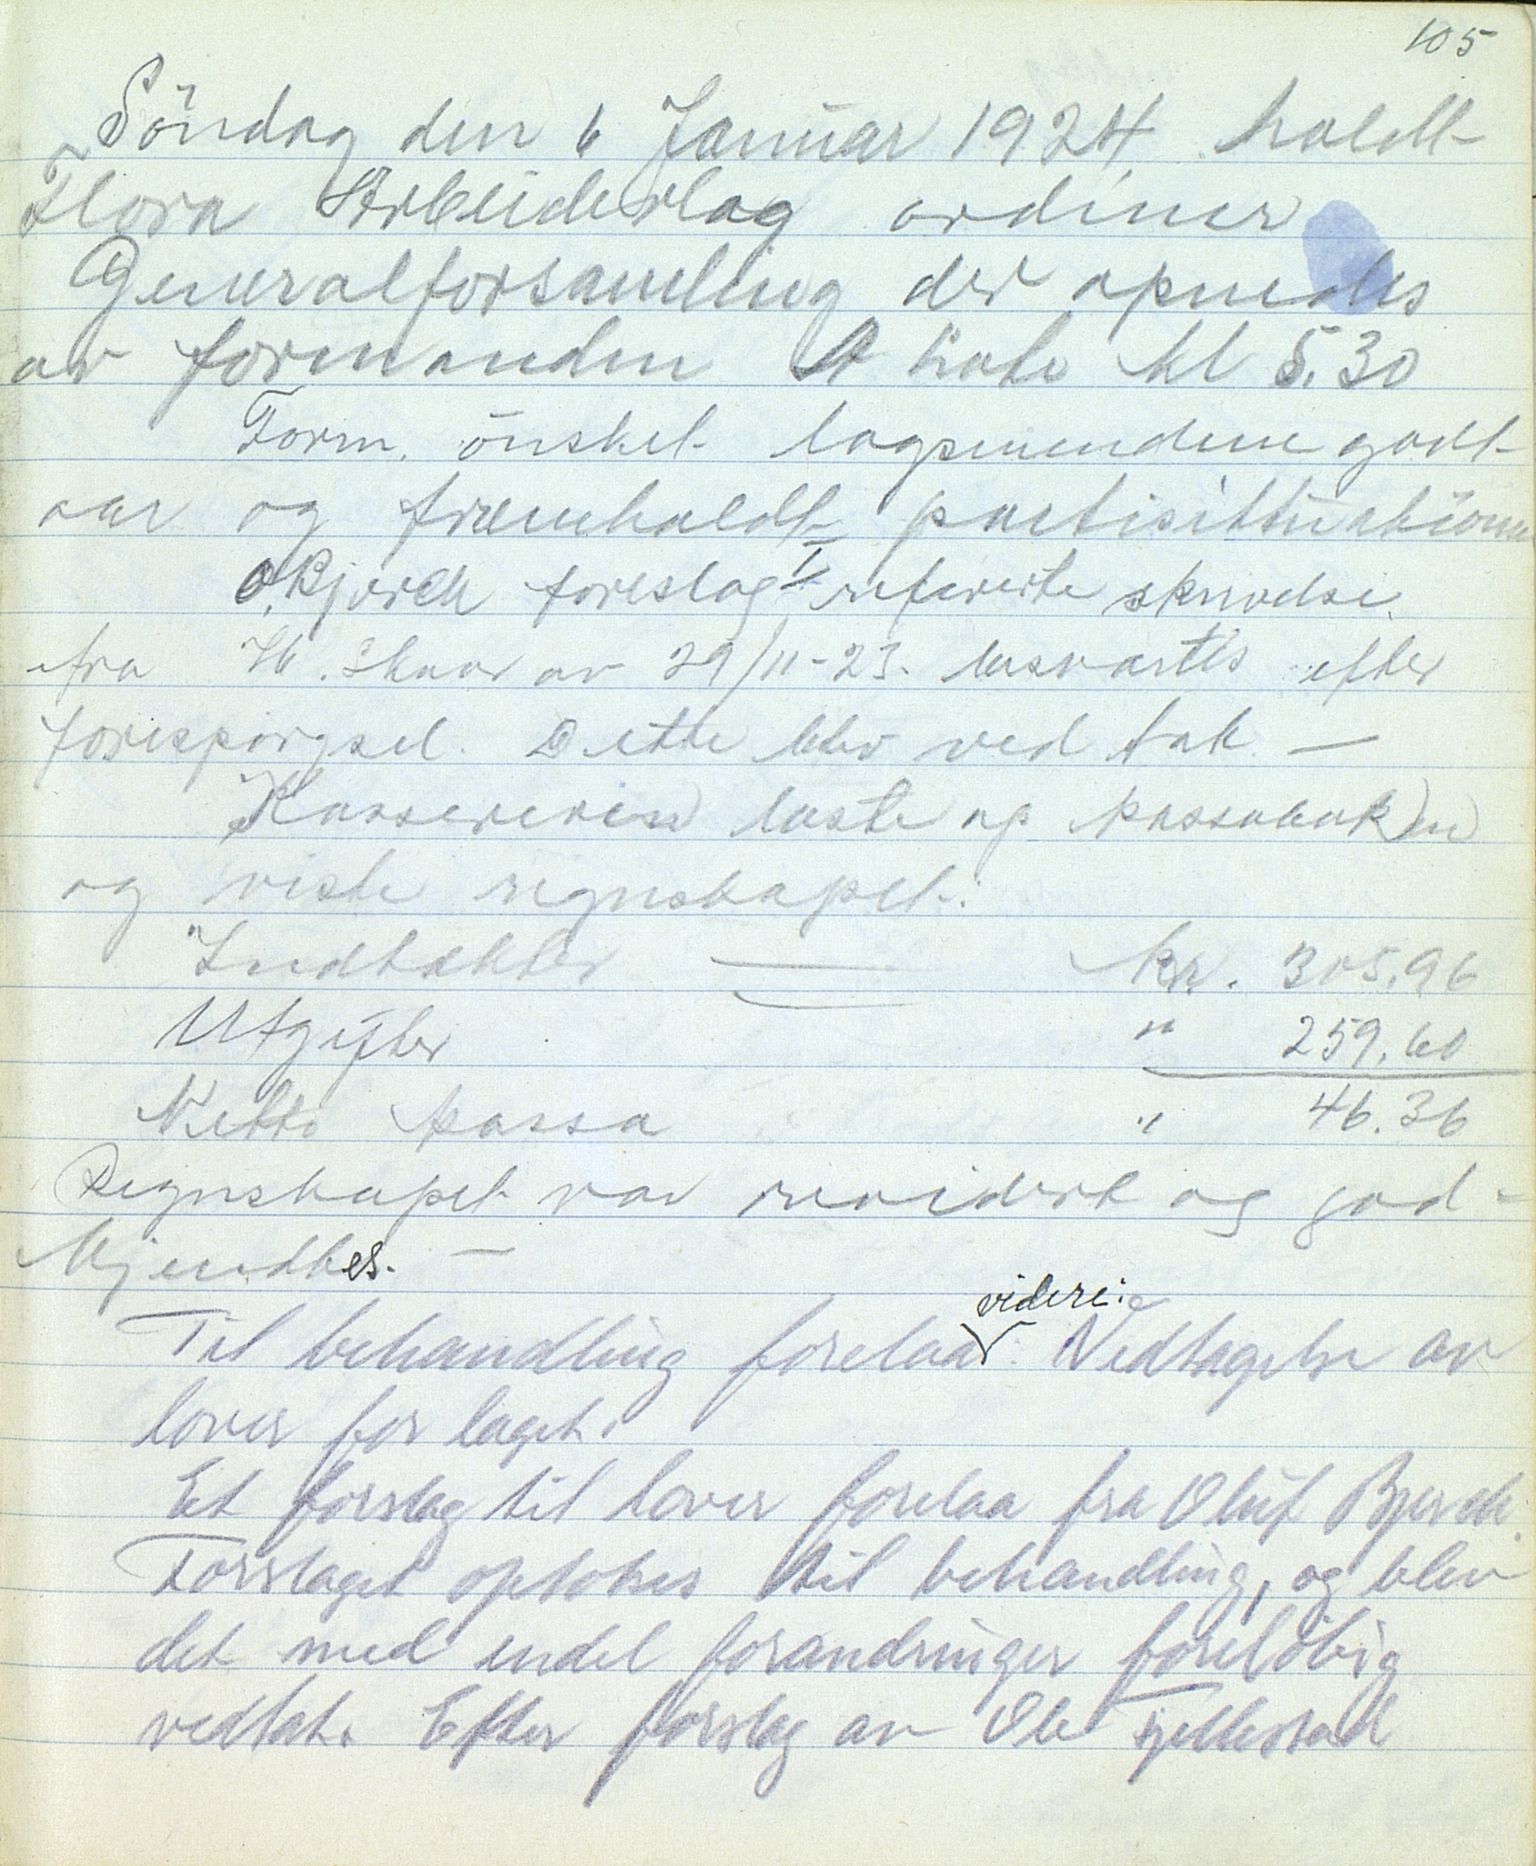 105
Söndag den 6 Januar 1924 holdt
Flora Arbeiderlag ordinær
Generalforsamling der apnedes
av formanden A kl 5.30
Form. önsket lagsmendene godt
aar og fræmholdt partisittuationen
O. Bjerck foreslog I refererte skrivelse
fra H. Skaar av 29/11-23. besvartes efter
forespörgsel. Dette blev ved tak —
Kassereren læste op kassaboken
og viste regnskapet:
Indtækter — kr. 305.96
Utgifter " 259.60
Netto kassa " 46.36
Regnskapet var revidert og god-
kjendtes. —
videre:
Til behandling forelaa Vedtagelse av
lover for laget.
Et forslag til lover forelaa fra Oluf Bjerck.
Forslaget optokes til behandling, og blev
det med endel forandringer forelöbig
vedtat. Efter forslag av Ole Fjellestad